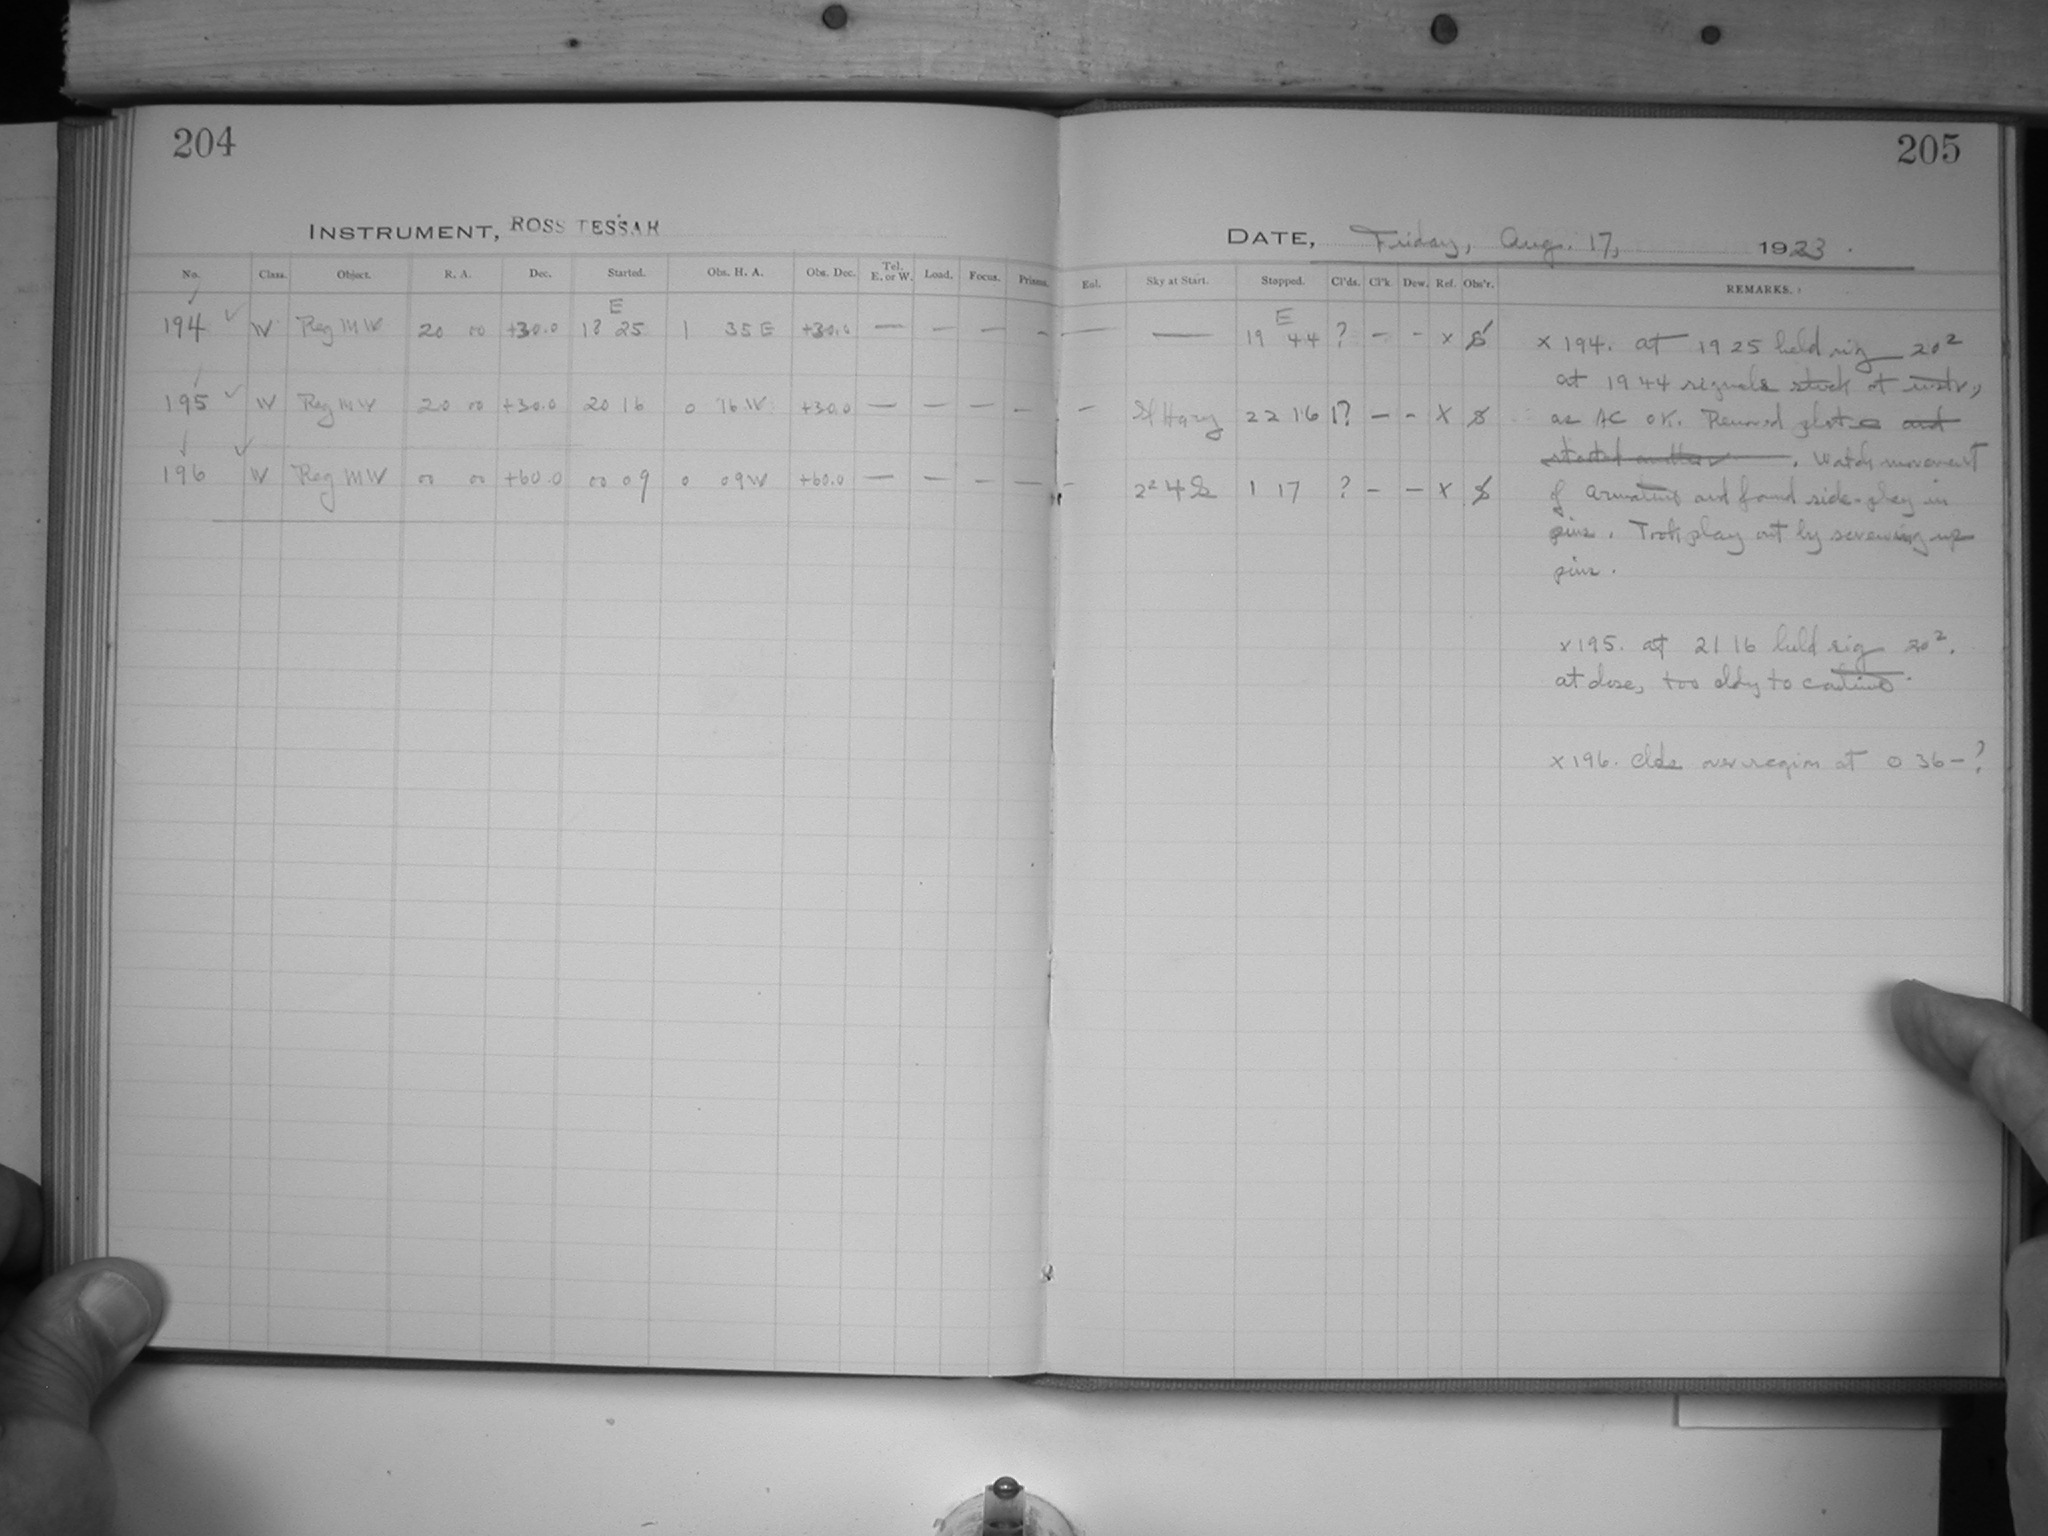 204
INSTRUMENT, ROSS TESSAR
No. Class. Object. R. A. Dec. Started. Obs. H. A. Obs. Dec. Tel. E. or W. Load. Focus. Prisms.
194 W Reg MW 20 00 +30.0 E 18 25 1 35 E +30.0 — — — —
195 W Reg MW 20 00 +30.0 20 16 0 16 W +30.0 — — — —
196 W Reg MW 00 00 +60.0 00 09 0 09 W +60.0 — — — —
205
DATE, Friday, Aug. 17, 1923.
Eol. Sky at Start. Stopped. Cl'ds. Cl'k Dew. Ref. Obs'r. REMARKS.
— — E 19 44 ? — - x
— Sl Hazy 22 16 1? — - x
- 1 17 ? — — x
x 194. at 19 25 held rig 20²
at 19 44 signals stuck at instr,
as AC OK. Removed plate and
started another. Watch movement
of armature and found side-play in
pins. Took play out by screwing up
pins.
x195. at 21 16 held rig 20².
at close, too cldy to continue.
x196. Clds over region at 0 36 – ?